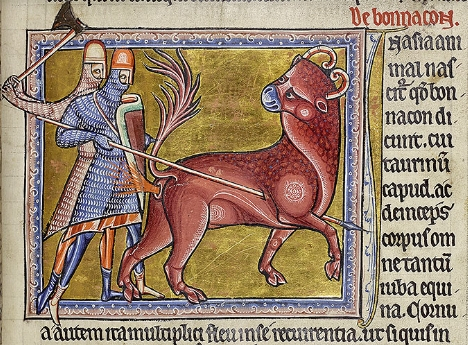 De bonnacon.
INasia ani
mal nas
cit͛ qđ bon
nacon di
cunt. cui
taurinū
capud. ac
deinceps
corpus om
ne tantū
iuba equi
na. Cornu
a autem ita multiplici flexu in se recurentia. ut si quis in